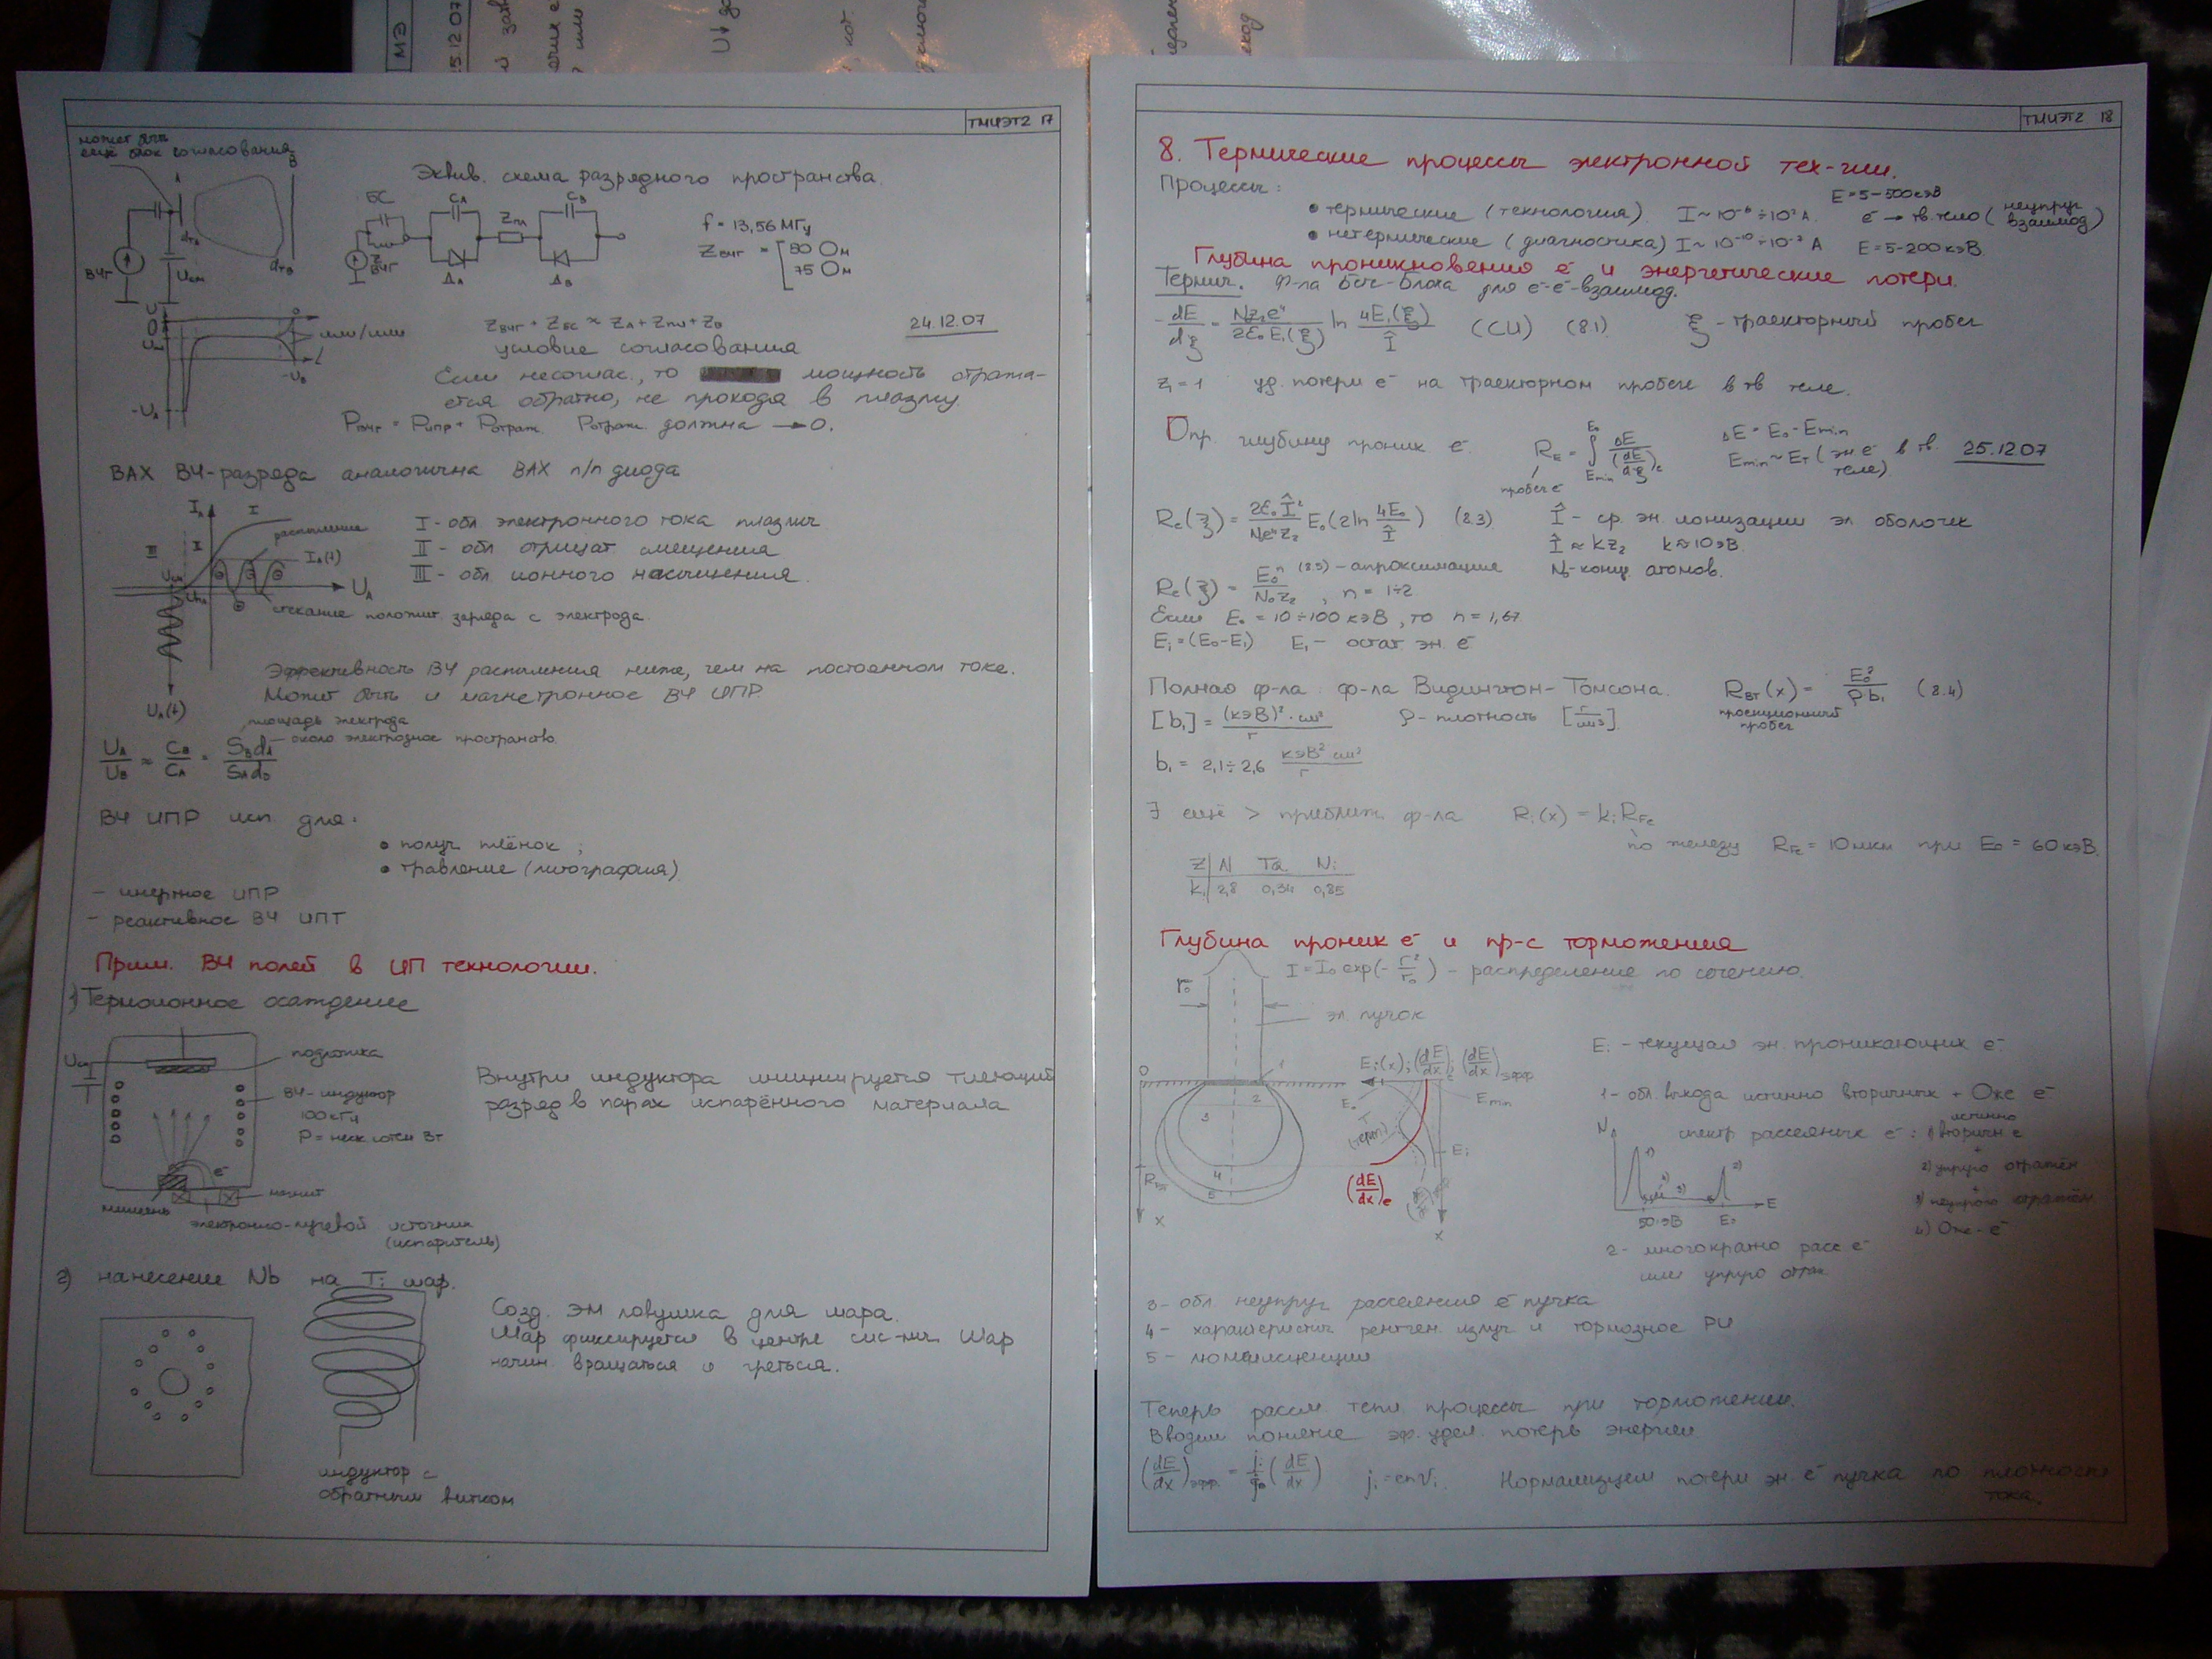 МЭ
25.12.07
ТМИЭТ2 17
может быть
ещё блок согласования
A
B
dтA
dтB
ВЧГ
Uсм
Эквив. схема разрядного пространства.
БС
CA
Zпл
CB
ВЧГ
ΔA
ΔB
f = 13,56 МГц
Zвчг = [50 Ом
75 Ом
U
0
-UA
-UB
Zвчг + Zбс ≈ ZA + Zпл + ZB
24.12.07
условие согласования
Если несоглас., то мощность отража-
ется обратно, не проходя в плазму.
Pвчг = Pипр + Pотраж. Pотраж. должна → 0.
ВАХ ВЧ-разряда аналогична ВАХ п/п диода
IA
I
распыление
III
II
IA(t)
UA
Uсм
стекание положит. заряда с электрода.
UA(t)
I - обл электронного тока плазмы
II - обл отрицат. смещения
III - обл. ионного насыщения.
Эффективность ВЧ распыления ниже, чем на постоянном токе.
Может быть и магнетронное ВЧ ИПР.
площадь электрода
около электродное пространство
UA/UB ≈ CB/CA = SBdA/SAdB
ВЧ ИПР исп. для:
• получ плёнок;
• травление (литография)
- инертное ИПР
- реактивное ВЧ ИПТ
Прим. ВЧ полей в ИП технологии.
1) Термоионное осаждение
Uсм
подложка
ВЧ-индуктор
100 кГц
P = неск. сотен Вт
e⁻
магнит
мишень
электронно-лучевой источник
(испаритель)
Внутри индуктора инициируется тлеющий
разряд в парах испарённого материала
2) нанесение Nb на Ti шар.
Созд. ЭМ ловушка для шара.
Шар фиксируется в центре сис-мы. Шар
начин. вращаться и греться.
индуктор с
обратным витком
ТМИЭТ2 18
8. Термические процессы электронной тех-гии.
Процессы:
E = 5-500кэВ
• термические (технология) I ~ 10⁻⁶ ÷ 10² A. e⁻ → тв. тело (неупруг взаимод)
• нетермические (диагностика) I ~ 10⁻¹⁰ ÷ 10⁻³ A E = 5-200 кэВ
Глубина проникновения e⁻ и энергетические потери.
Термич. Ф-ла Бете-Блоха для e⁻-e⁻-взаимод.
-dE/dξ = Nz₂e⁴/2ε₀E₁(ξ) ln 4E₁(ξ)/Î (СИ) (8.1) ξ - траекторный пробег
z₁ = 1 уд. потери e⁻ на траекторном пробеге в тв теле.
Опр. глубину проник e⁻. RE = ∫ ΔE/(dE/dξ)e
E₀
Emin
пробег e⁻
ΔE = E₀ - Emin
Emin ~ Eт (эн e⁻ в тв. теле)
25.12.07
Re(ξ) = 2ε₀Î²/Ne⁴z₂ E₀(2ln 4E₀/Î) (8.3) Î - ср. эн. ионизации эл. оболочек
Î ≈ kz₂ k ≈ 10 эВ.
Re(ξ) = E₀ⁿ/N₀z₂ (8.5) - апроксимация, n = 1÷2 N₀-конц. атомов.
Если E₀ = 10 ÷ 100 кэВ, то n = 1,67
Ei = (E₀-E₁) E₁ - остат. эн. e⁻
Полная ф-ла: ф-ла Видингтон-Томсона. RВТ(x) = E₀²/ρ·b₁ (8.4)
проекционный
пробег
[b₁] = (кэВ)²·см²/г ρ - плотность [г/см³]
b₁ = 2,1÷2,6 кэВ² см²/г
∃ ещё > приближ. ф-ла Ri(x) = kiRFe
по железу RFe = 10 мкм при E₀ = 60 кэВ.
Z | N Ta Ni
ki | 2,8 0,34 0,85
Глубина проник e⁻ и пр-с торможения
I = I₀ exp(- r²/r₀²) - распределение по сечению.
r₀
эл. пучок
0
1
2
3
4
5
x
Ei(x); (dE/dx)e; (dE/dx)эфф
E₀
Emin
Ei
(dE/dx)e
x
Ei - текущая эн. проникающих e⁻
1 - обл. выхода истинно вторичных + Оже e⁻
спектр рассеяних e⁻: 1) истинно вторичн e⁻
+
2) упруго отражён
+
3) неупруго отражён
4) Оже-e⁻
N
50 эВ
E₀
E
2 - многократно расс e⁻
или упруго отраж
3 - обл. неупруг рассеяния e⁻ пучка
4 - характеристич рентген. излуч и тормозное РИ
5 - люминисценция
Теперь рассм. тепл. процессы при торможении.
Вводим понятие эф. удел. потерь энергии
(dE/dx)эфф = ji/j₀ (dE/dx) ji = enVi. Нормализуем потери эн. e⁻ пучка по плотности
тока.